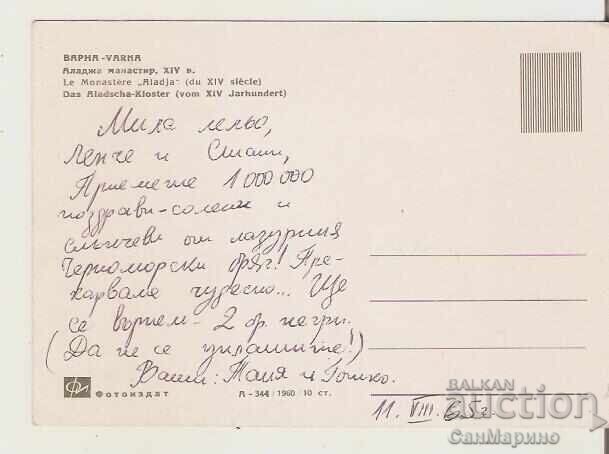 ВАРНА - VARNA
Аладжа манастир, XIV в.
Le Monastère „Aladja" (du XIV siècle)
Das Aladscha-Kloster (vom XIV Jarhundert)
Мила лельо,
Ленче и Сташи,
Приемете 1 000 000
поздрави - солени и
слънчеви от лазурния
Черноморски бряг! Пре-
карваме чудесно... Ще
се върнем - 2 бр. негри.
(Да не се уплашите!)
Ваши: Таня и Гошко.
Фотоиздат
А - 344 / 1960 / 10 ст.
11. VIII. 65 г.
BALKAN
auction
СанМарино